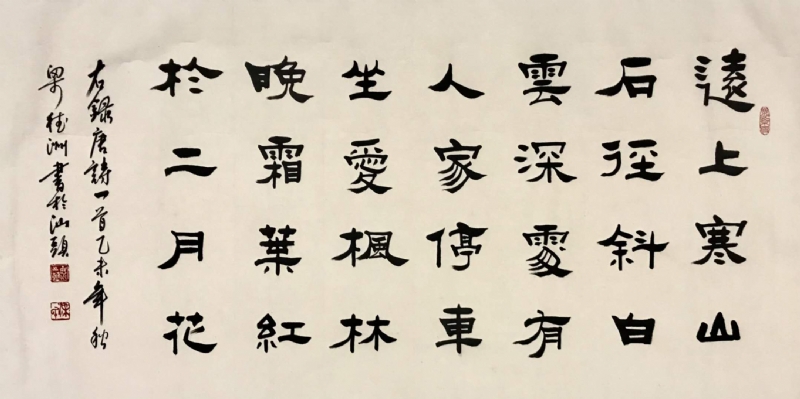 遠上寒山
石徑斜白
雲深處有
人家停車
坐愛楓林
晚霜葉紅
於二月花
右錄唐詩一首乙未年秋
梁桂洲書於汕頭